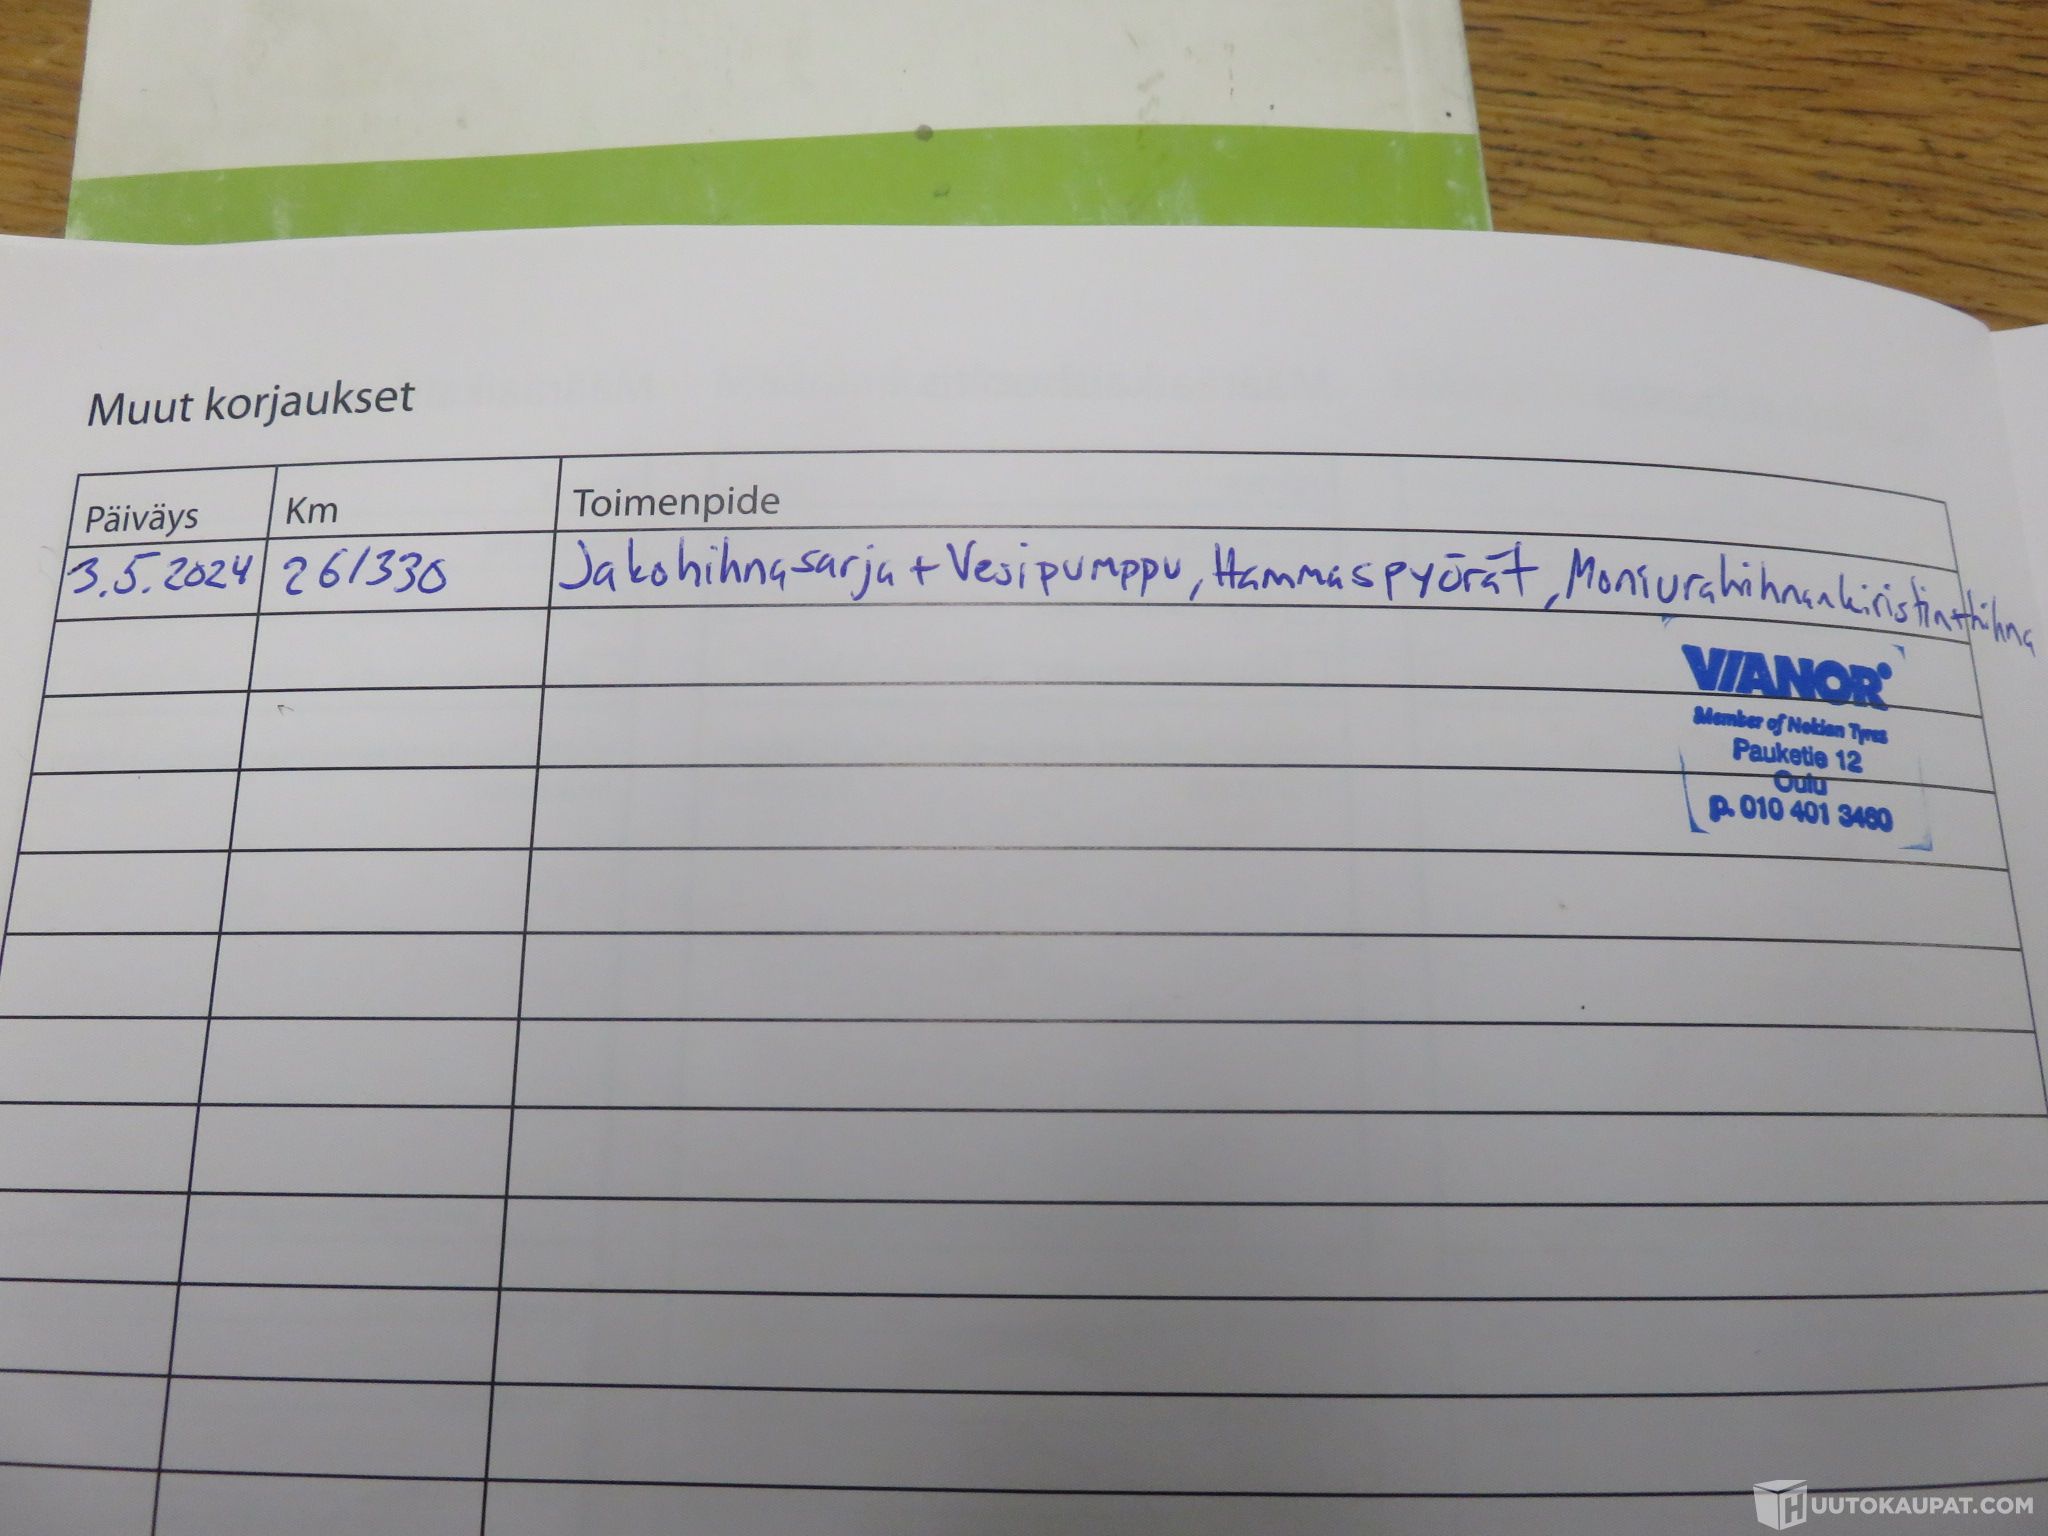 Muut korjaukset
Päiväys Km Toimenpide
3.5.2024 261330 Jakohihnasarja + Vesipumppu, Hammaspyörät, Moniurahihnankiristin + hihna
VIANOR
Member of Nokian Tyres
Pauketie 12
Oulu
p. 010 401 3480
HUUTOKAUPAT.COM